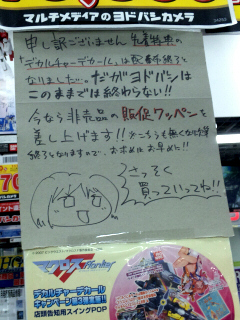 マルチメディアのヨドバシカメラ
申し訳ございません 先着特典の
「デカルチャーデカール」は配布終了と
なりました…。だがヨドバシは
このままでは終わらない!!
今なら非売品の販促ワッペンを
差し上げます!! ※こちらも無くなり次第
終了となりますので、お求めはお早めに!!
さっそく
買っていってね!!
マクロス
デカルチャーデカール
キャンペーン第3弾実施!!
店頭告知用スイングPOP